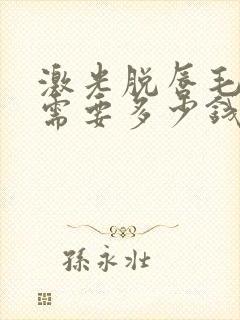 激光脱唇毛
需要多少钱
孫永壯